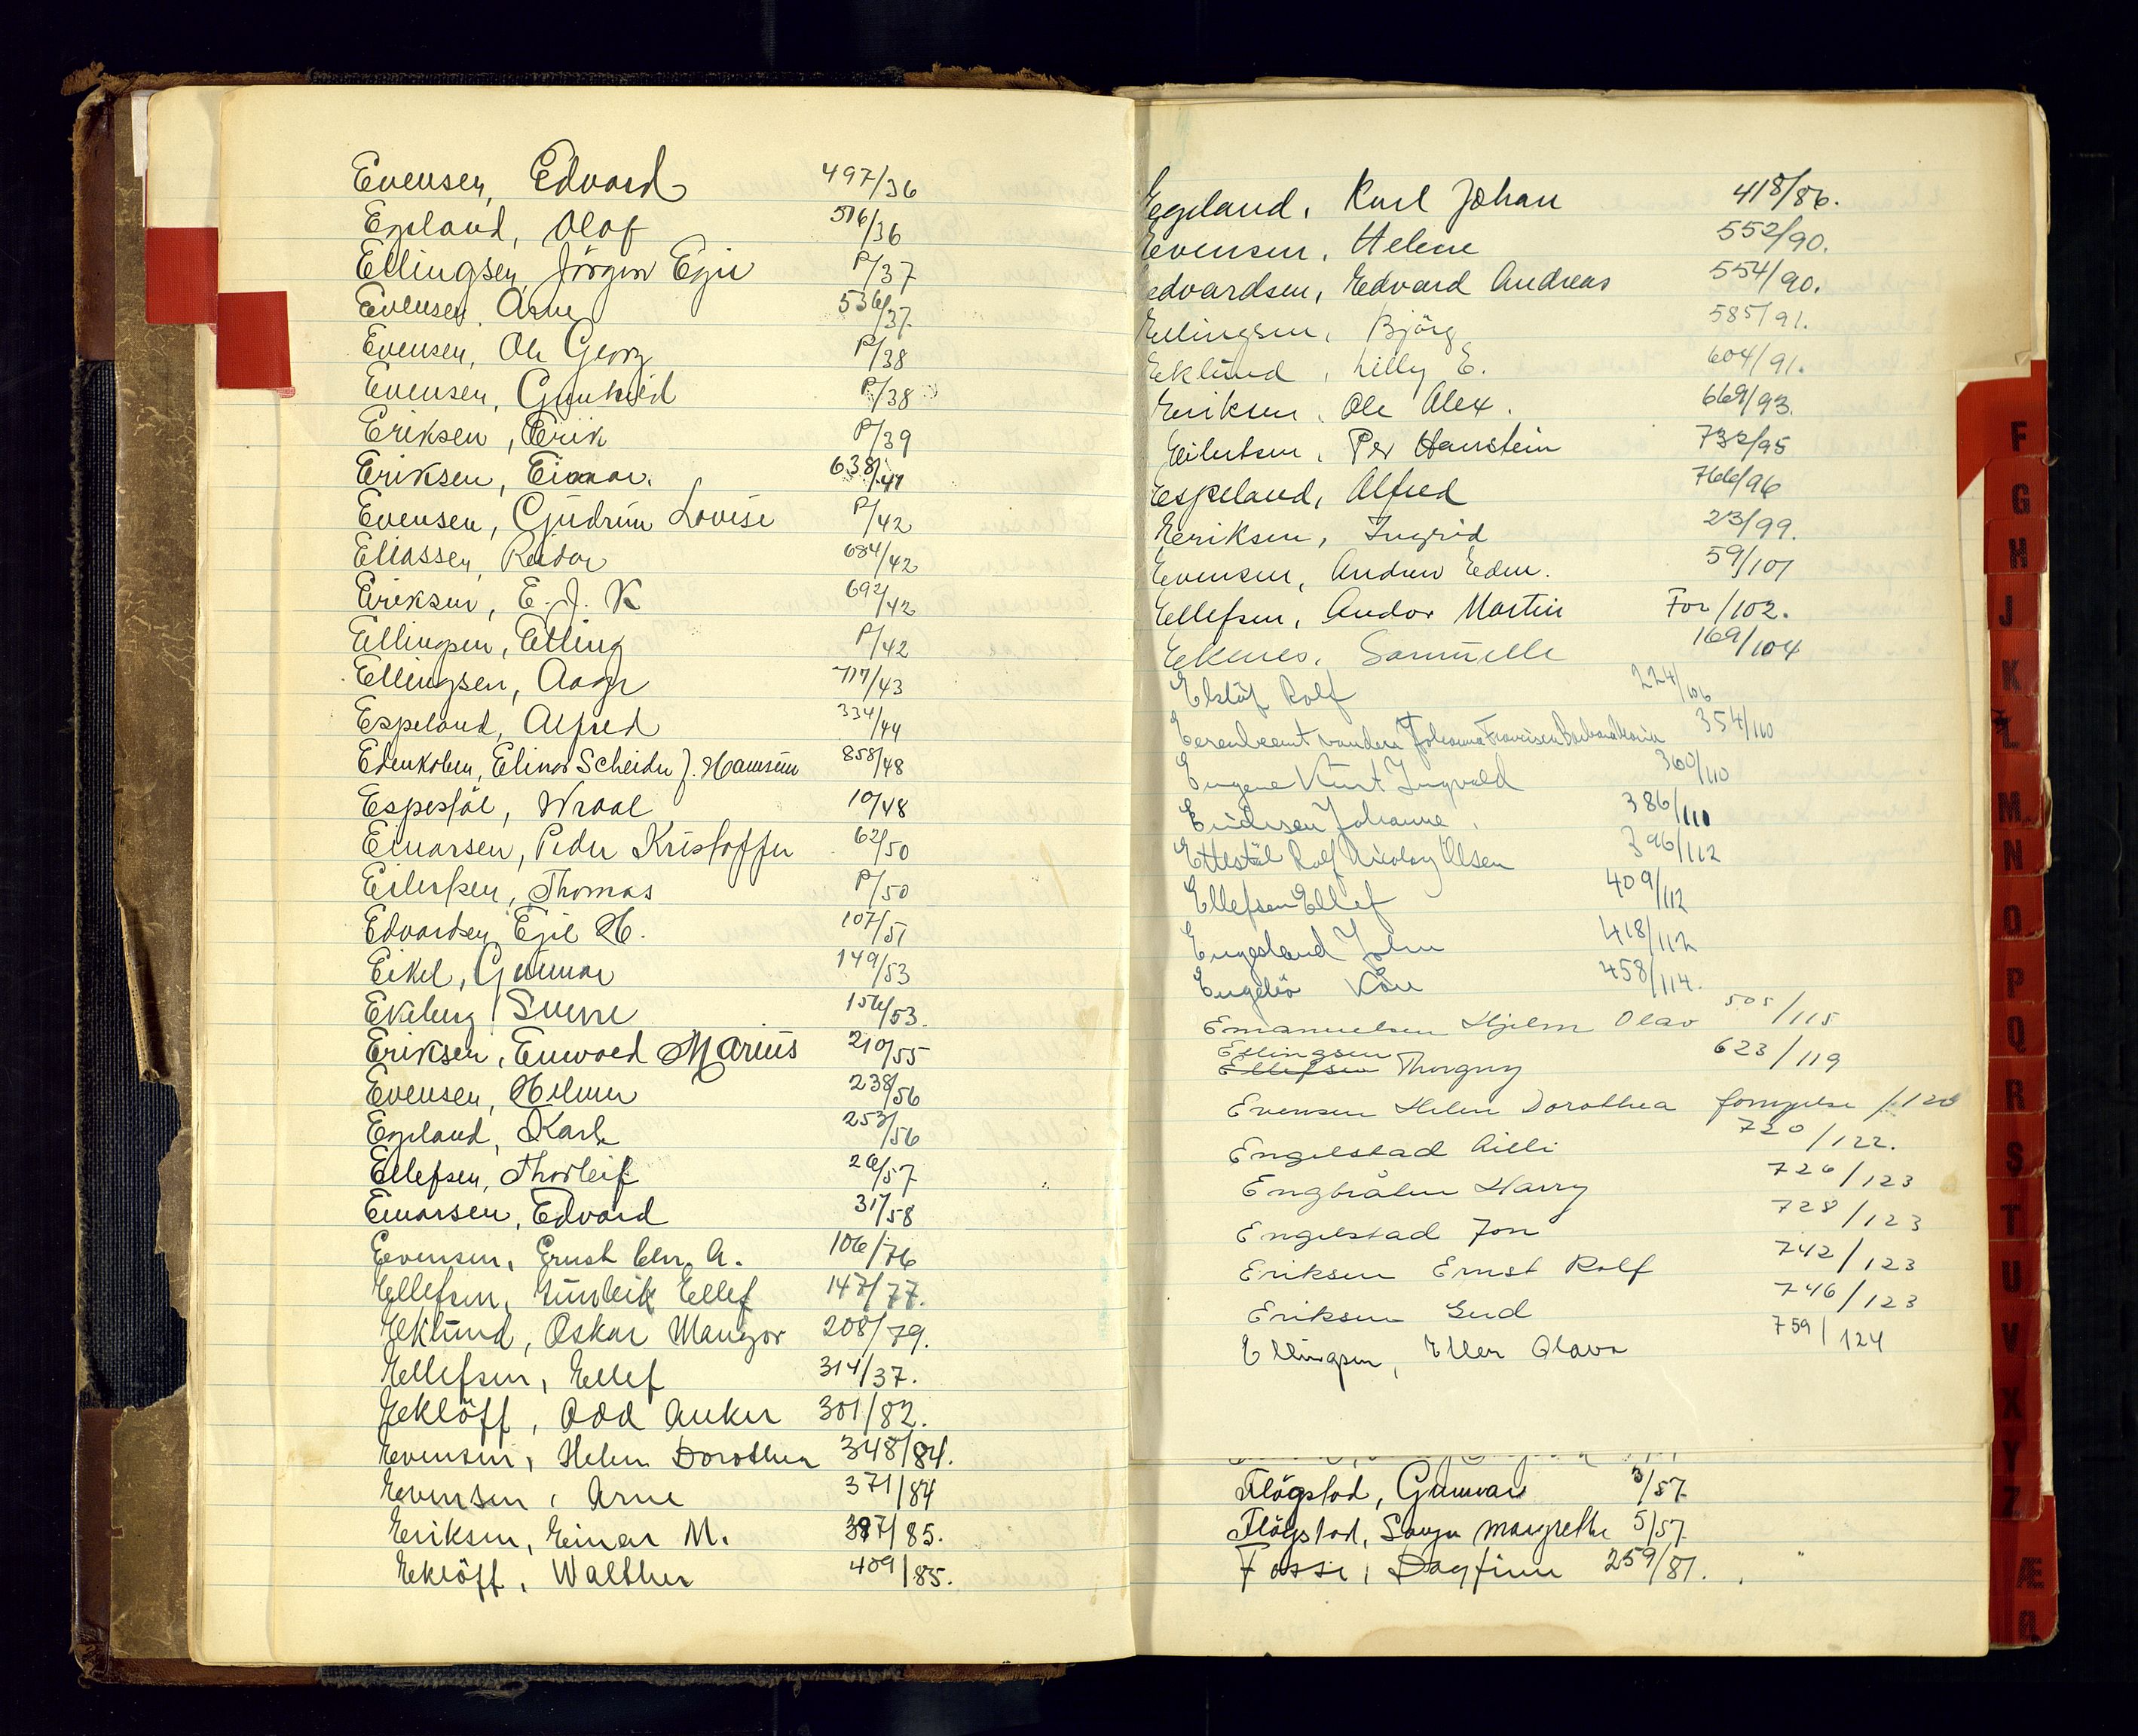 Evensen, Edvard 497/36
Egeland, Olaf 516/36
Ellingsen, Jörgen Egil P/37
Evensen, Arne 536/37.
Evensen, Ole Georg P/38
Evensen, Gunhild P/38
Eriksen, Erik P/39
Eriksen, Einar. 638/41
Evensen, Gudrun Lovise P/42
Eliassen, Reidar 684/42
Eriksen, E. J. K 692/42
Ellingsen, Erling P/42
Ellingsen, Aage 717/43
Espeland, Alfred 334/44
Edenkoben, Elinor Scheider f. Hamsun 858/48
Espestöl, Wraal 10/48
Einarsen, Peder Kristoffer 62/50
Eilertsen, Thomas P/50
Edvardsen, Egil H. 107/51
Eikel, Gunnar 149/53
Ekeberg, Sverre 156/53.
Eriksen, Einvald Marius 210/55
Evensen, Hilmer 238/56
Egeland, Karl. 253/56
Ellefsen, Thorleif 26/57
Einarsen, Edvard 31/58
Evensen, Ernst Chr. A. 106/76
Ellefsen, Gunleik Ellef 147/77.
Eklund, Oskar Mangor 208/79.
Ellefsen, Ellef 314/37.
Eklöff, Odd Anker 301/82.
Evensen, Helen Dorothea 348/84.
Evensen, Arne 371/84
Eriksen, Einar M. 387/85.
Eklöff, Walther 409/85.
Egeland, Karl Johan 418/86.
Evensen, Helene 552/90.
Edvardsen, Edvard Andreas 554/90.
Ellingsen, Björg 585/91.
Eklund, Lilly E. 604/91.
Eriksen, Ole Alex. 669/93.
Eilertsen, Per Hanstein 732/95
Espeland, Alfred 766/96
Eriksen, Ingrid 23/99.
Evensen, Andrew Edm. 59/101
Ellefsen, Andor Martin For/102.
Ekenes, Samuelle 169/104
Elstöf Rolf 224/106
354/110
Eugene Kurt Ingvald 360/110
Eidesen Johanne. 386/110
Ettestöl Rolf Nicolay Olsen 396/112
Ellefsen Ellef 409/112
Engesland John 418/112
Kåre 458/114.
Emanuelsen Hjelm Olav 505/115
Ellingsen
Ellefsen Thorgny 623/119
Evensen Helen Dorothea fornyelse /120
Engelstad Ailli 720/122.
Engbråten Harry 726/123
Engelstad Jon 728/123
Eriksen Ernst Rolf 742/123
Eriksen Gerd 746/123
Ellingsen, Ellen Olava 759/124
Flögstad, Gunnar 3/57
Flögstad, Sonja Margrethe 5/57
Fosse, Dagfinn 259/81.
F
G
H
J
K
L
M
N
O
P
Q
R
S
T
U
V
X
Y
Z
Æ
Ø